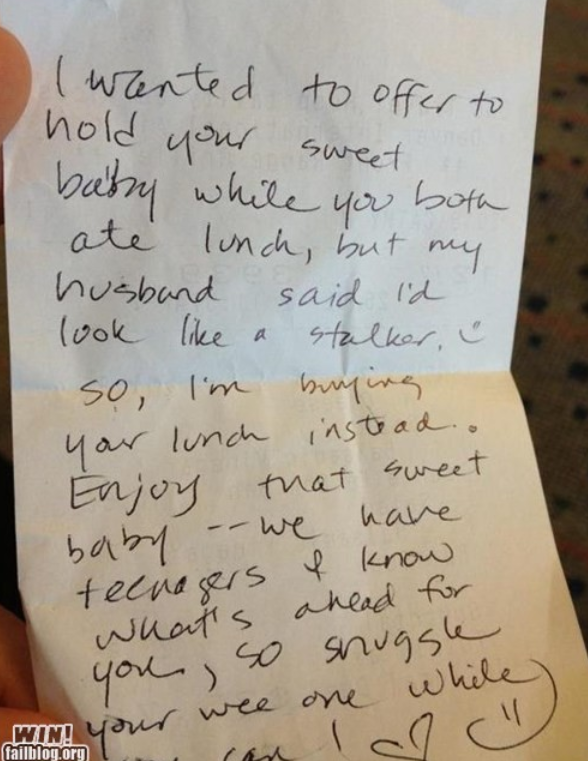 I wanted to offer to
hold your sweet
baby while you both
ate lunch, but my
husband said I'd
look like a stalker.
So, I'm buying
your lunch instead..
Enjoy that sweet
baby -- we have
teenagers & know
what's ahead for
you, so snuggle
your wee one while
can!
WIN!
failblog.org